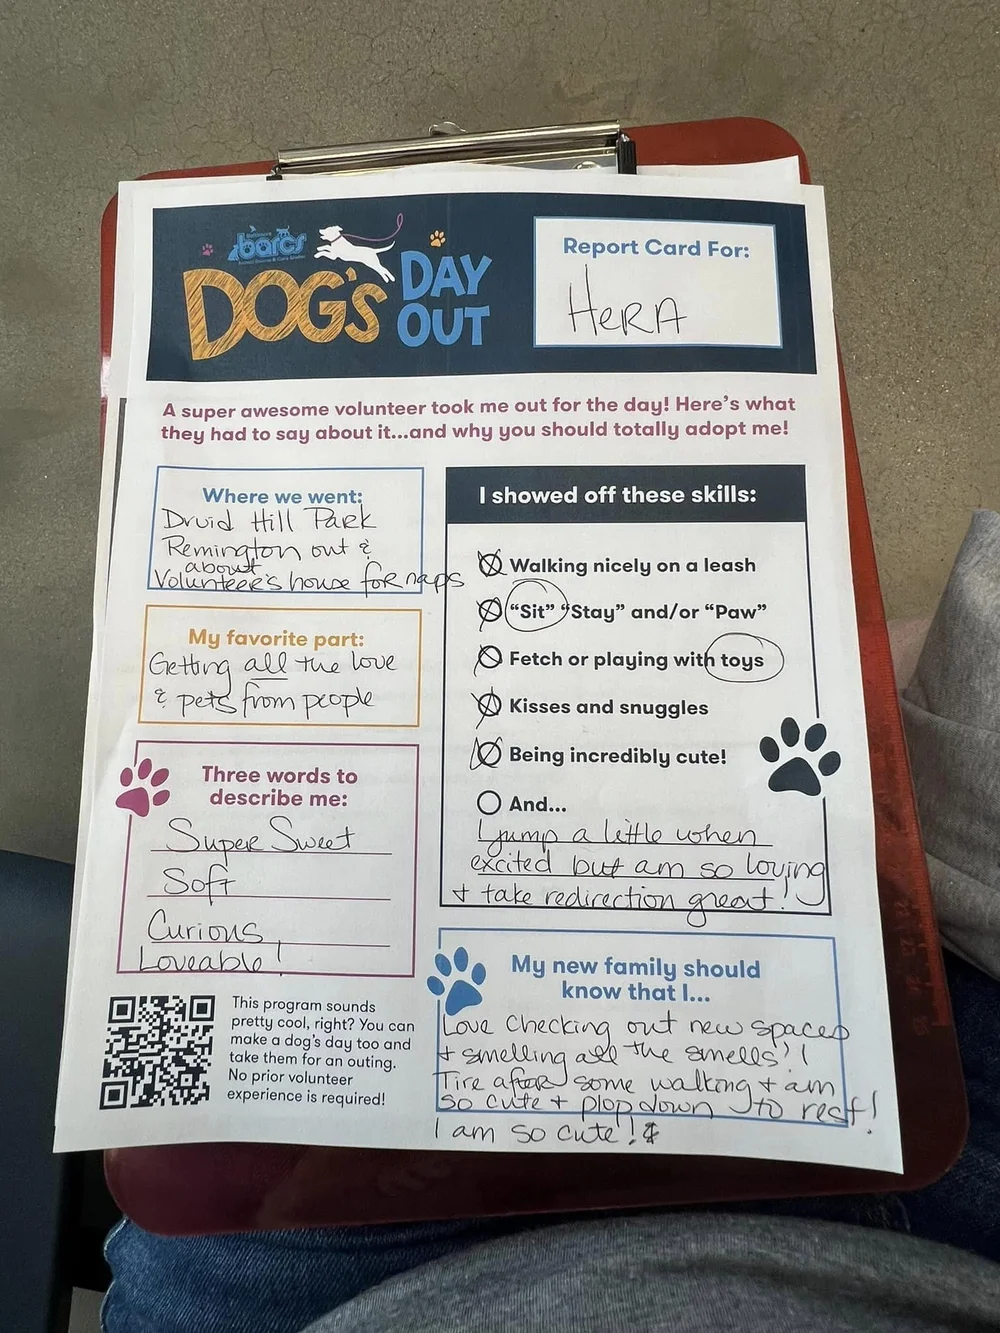 barcs
DOG'S DAY OUT
Report Card For:
HERA
A super awesome volunteer took me out for the day! Here's what
they had to say about it...and why you should totally adopt me!
Where we went:
Druid Hill Park
Remington out &
about
Volunteer's house for naps
My favorite part:
Getting all the love
& pets from people
Three words to
describe me:
Super Sweet
Soft
Curious,
Loveable!
I showed off these skills:
Walking nicely on a leash
"Sit" "Stay" and/or "Paw"
Fetch or playing with toys
Kisses and snuggles
Being incredibly cute!
And...
I jump a little when
excited but am so loving
+ take redirection great!
My new family should
know that I...
Love checking out new spaces
+ smelling all the smells!!
Tire after some walking + am
so cute + plop down to rest!
I am so cute!
This program sounds
pretty cool, right? You can
make a dog's day too and
take them for an outing.
No prior volunteer
experience is required!